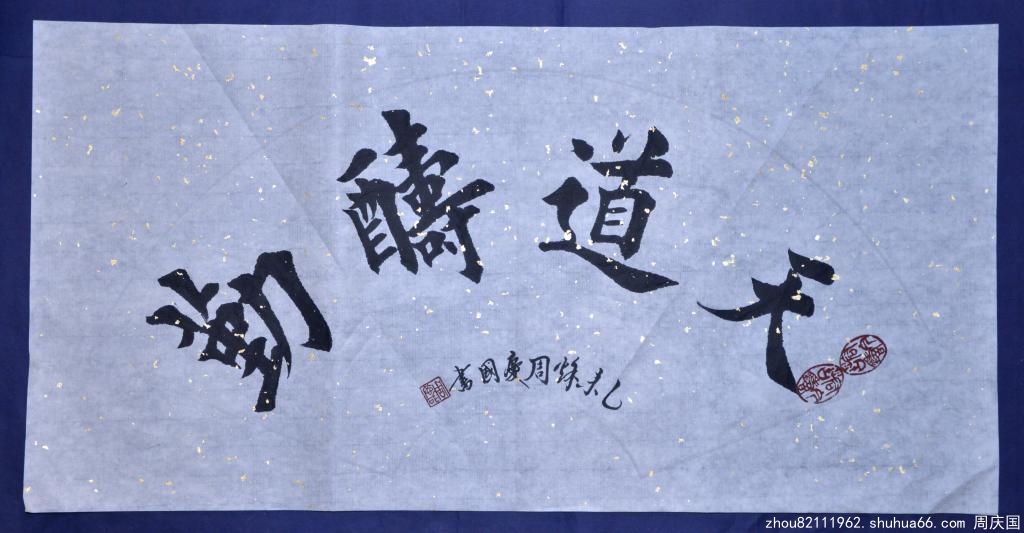 天道醻勤
乙未秋周慶國書
zhou82111962.shuhua66.com 周庆国